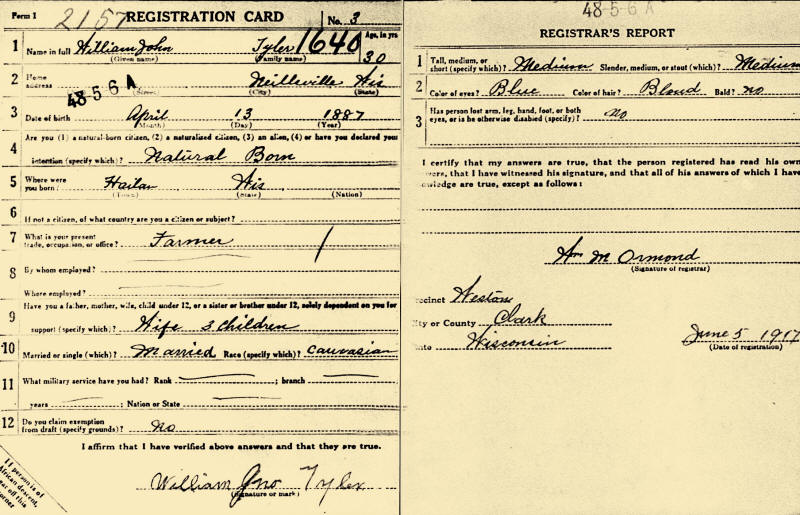 Form 1 2157 REGISTRATION CARD No. 3
1 Name in full William John Tyler 1640 Age, in yrs 30
(Given name) (Family name)
2 Home address Neillsville Wis
(Street) (City) (State)
48-5-6 A
3 Date of birth April 13 1887
(Month) (Day) (Year)
Are you (1) a natural-born citizen, (2) a naturalized citizen, (3) an alien, (4) or have you declared your
4 intention (specify which)? Natural Born
5 Where were you born? Wis
(Town) (State) (Nation)
6 If not a citizen, of what country are you a citizen or subject?
7 What is your present trade, occupation, or office? Farmer
8 By whom employed?
Where employed?
Have you a father, mother, wife, child under 12, or a sister or brother under 12, solely dependent on you for
9 support (specify which)? Wife 3 Children
10 Married or single (which)? Married Race (specify which)? Cauvasian
11 What military service have you had? Rank ; branch
years ; Nation or State
12 Do you claim exemption from draft (specify grounds)? No
I affirm that I have verified above answers and that they are true.
William Jno Tyler
(Signature or mark)
If person is of
African descent,
ear off this
orner
48-5-6 A
REGISTRAR'S REPORT
1 Tall, medium, or short (specify which)? Medium Slender, medium, or stout (which)? Medium
2 Color of eyes? Blue Color of hair? Blond Bald? no
3 Has person lost arm, leg, hand, foot, or both eyes, or is he otherwise disabled (specify)? no
I certify that my answers are true, that the person registered has read his own
wers, that I have witnessed his signature, and that all of his answers of which I have
owledge are true, except as follows:
Wm M Ormond
(Signature of registrar)
ecinct Weston
ity or County Clark
ate Wisconsin June 5 1917
(Date of registration)